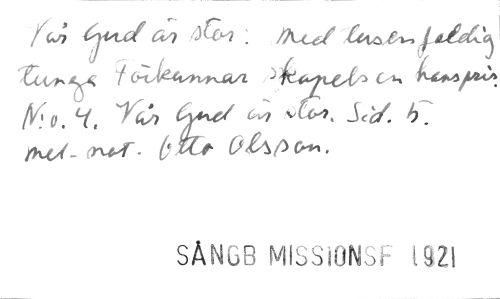 Vår Gud är stor: Med tusenfaldig
tunga Förkunnar skapelsen hans pris.
N:o. 4. Vår Gud är stor. Sid. 5.
met- not. Otto Olsson.
SÅNGB MISSIONSF 1921